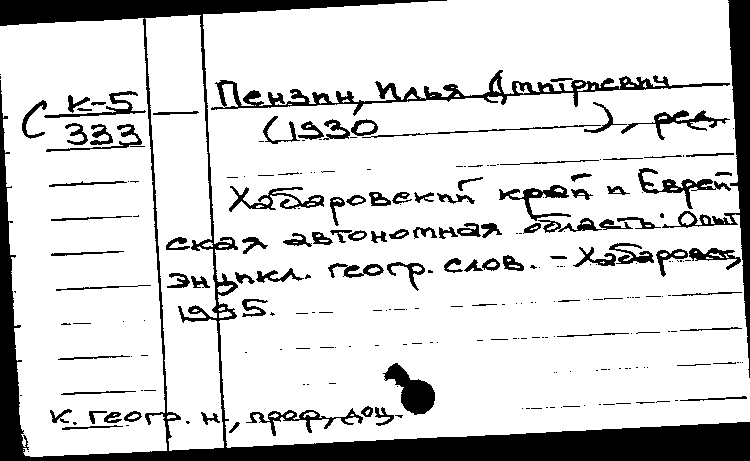 К-5
333
Пензин, Илья Дмитриевич
(1930 ), ред.
Хабаровский край и Еврей-
ская автономная область: Опыт
энцикл. геогр. слов. – Хабаровск,
1995.
к. геогр. н., проф, доц.